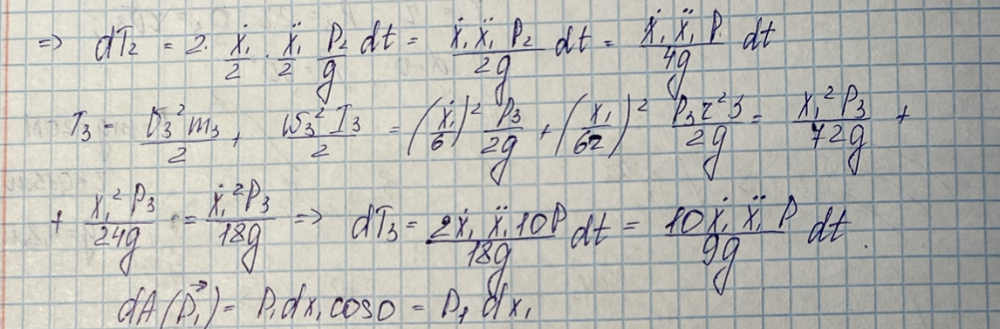 => dT₂ = 2 · ẋ₁/2 · ẍ₁/2 P₂/g dt = ẋ₁ẍ₁P₂/2g dt = ẋ₁ẍ₁P/4g dt
T₃ = v₃²m₃/2 + ω₃²I₃/2 = (ẋ₁/6)² P₃/2g + (ẋ₁/6r)² P₃r²3/2g = ẋ₁²P₃/72g +
+ ẋ₁²P₃/24g = ẋ₁²P₃/18g => dT₃ = 2ẋ₁ẍ₁10P/18g dt = 10ẋ₁ẍ₁P/9g dt.
dA(P⃗₁) = P₁dx₁cos0 = P₁dx₁